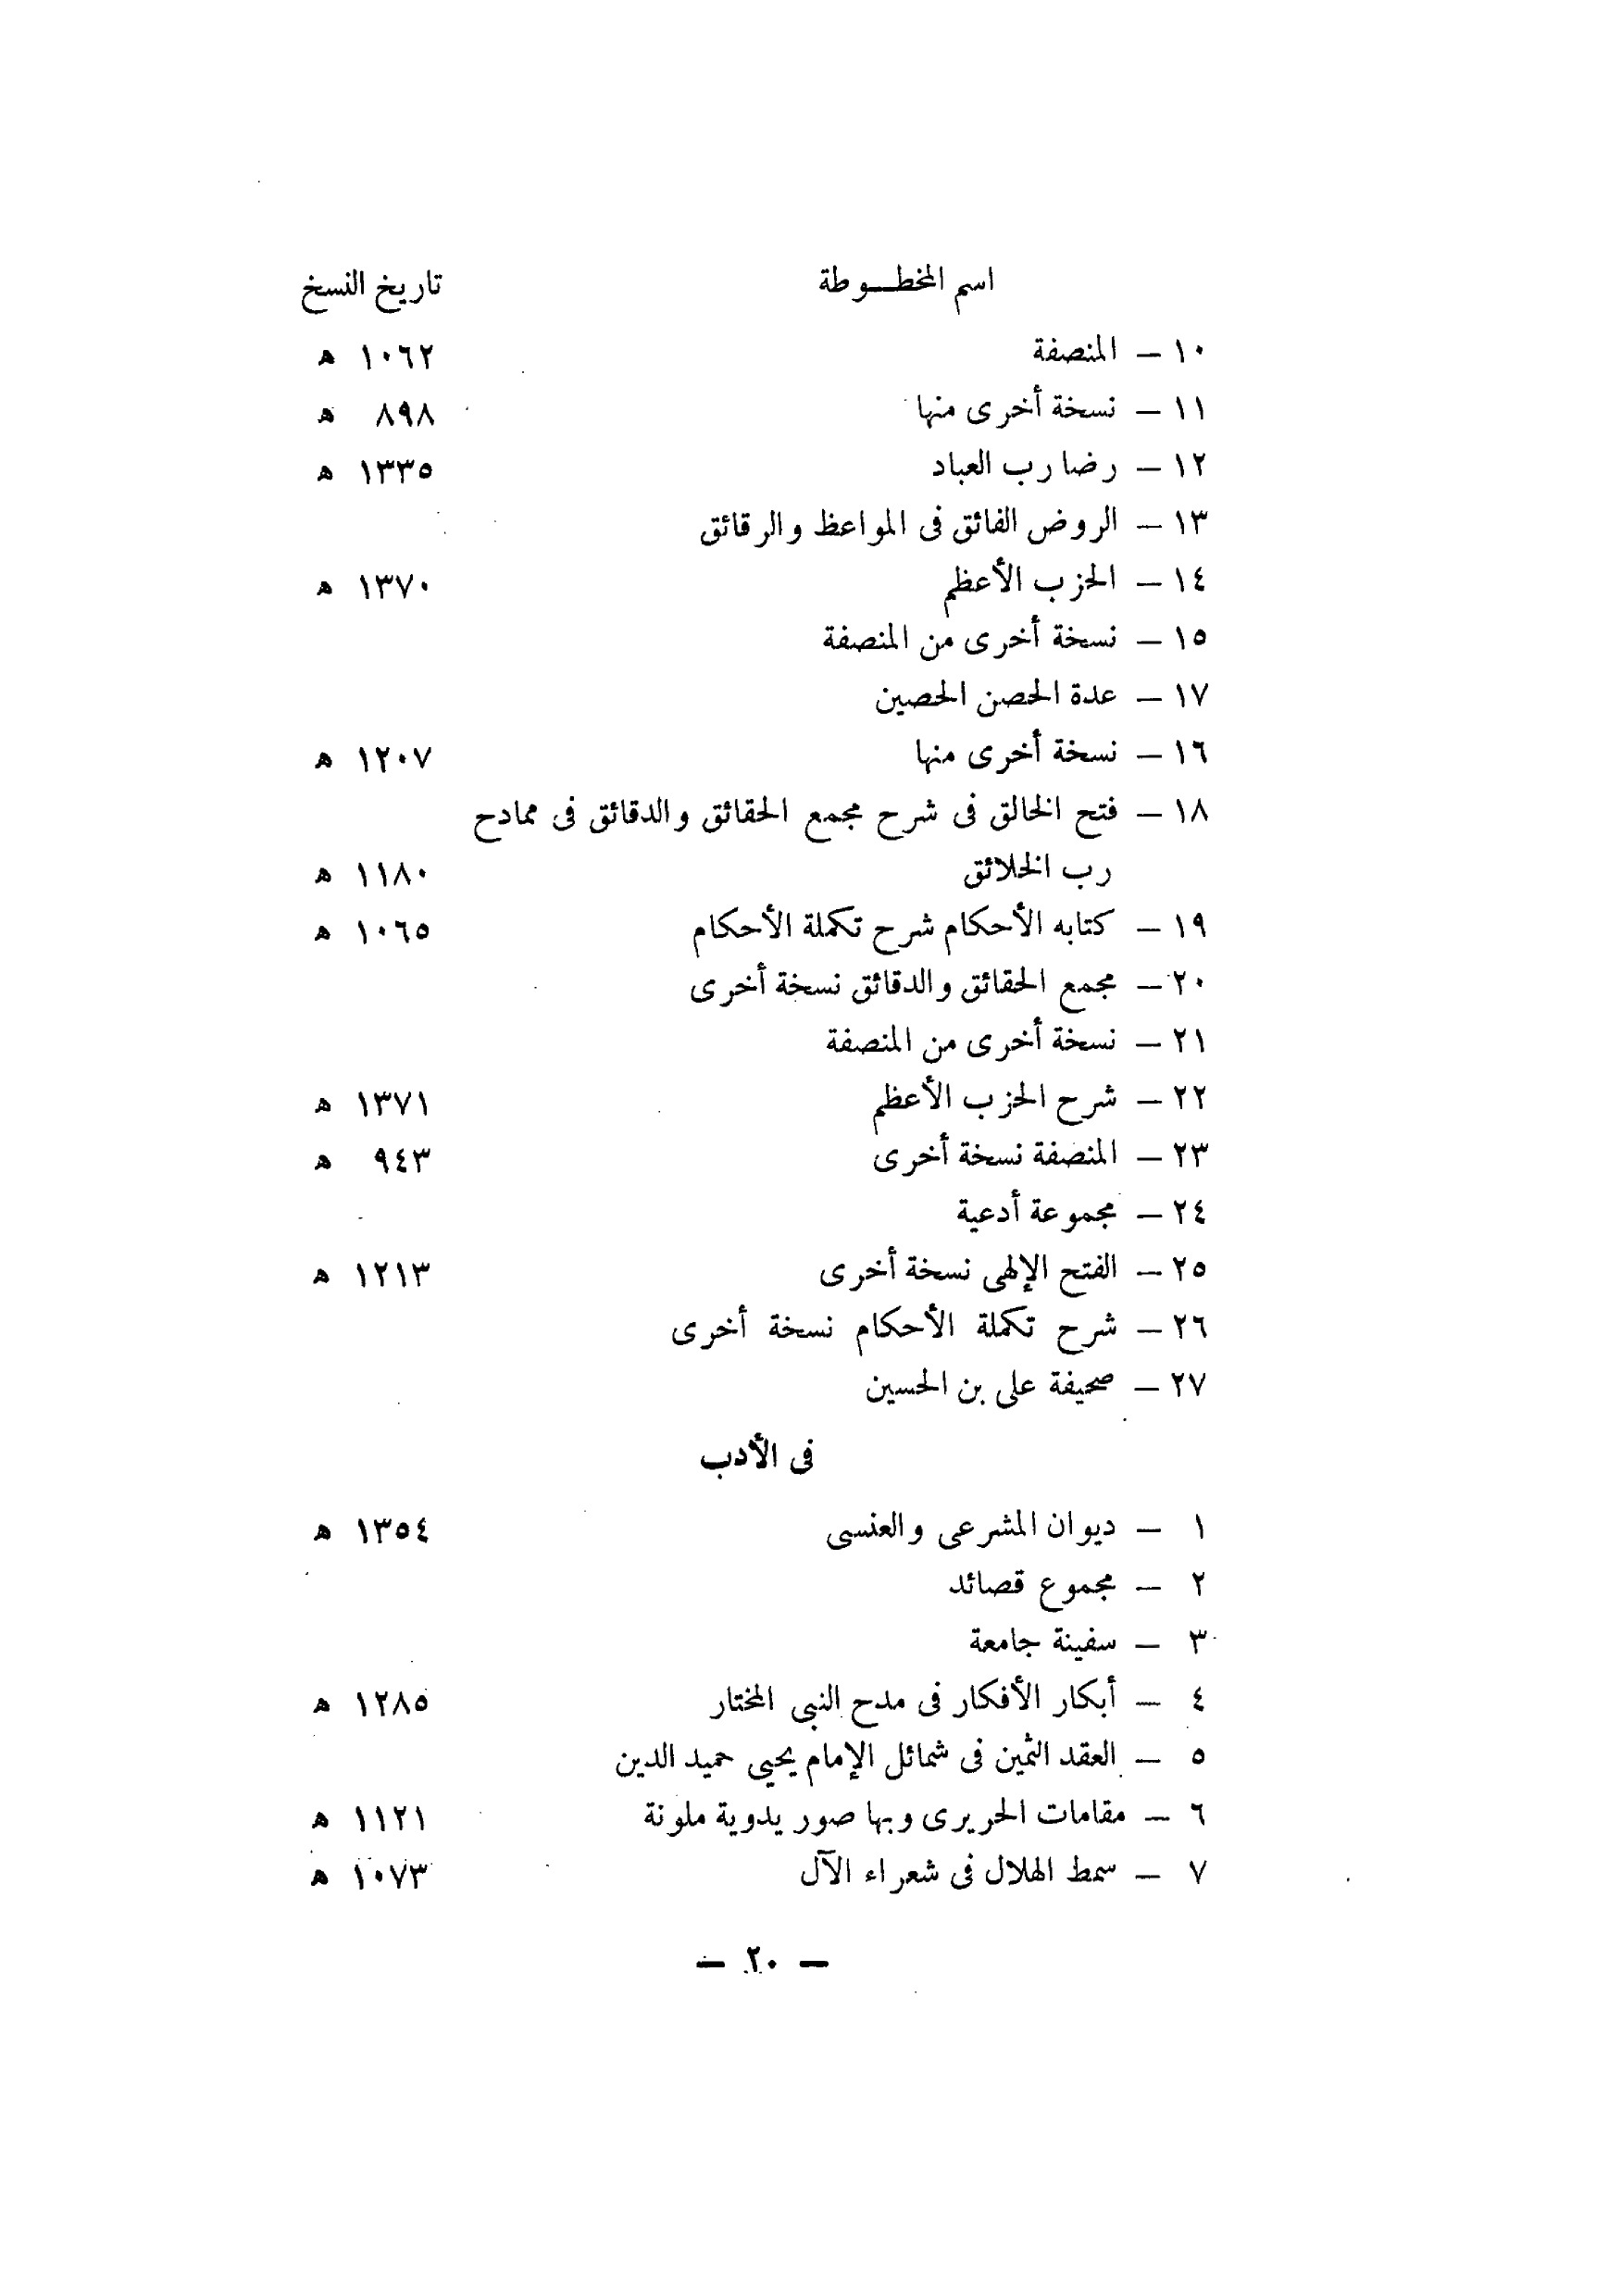 اسم المخطـوطة تاريخ النسخ
١٠ — المنصفة ١٠٦٢ ه
١١ — نسخة أخرى منها ٨٩٨ ه
١٢ — رضا رب العباد ١٣٣٥ ه
١٣ — الروض الفائق فى المواعظ والرقائق
١٤ — الحزب الأعظم ١٣٧٠ ه
١٥ — نسخة أخرى من المنصفة
١٧ — عدة الحصن الحصين
١٦ — نسخة أخرى منها ١٢٠٧ ه
١٨ — فتح الخالق فى شرح مجمع الحقائق والدقائق فى ممادح
رب الخلائق ١١٨٠ ه
١٩ — كتابه الأحكام شرح تكملة الأحكام ١٠٦٥ ه
٢٠ — مجمع الحقائق والدقائق نسخة أخرى
٢١ — نسخة أخرى من المنصفة
٢٢ — شرح الحزب الأعظم ١٣٧١ ه
٢٣ — المنصفة نسخة أخرى ٩٤٣ ه
٢٤ — مجموعة أدعية
٢٥ — الفتح الإلهى نسخة أخرى ١٢١٣ ه
٢٦ — شرح تكملة الأحكام نسخة أخرى
٢٧ — صحيفة على بن الحسين
فى الأدب
١ — ديوان المشرعى والعنسى ١٣٥٤ ه
٢ — مجموع قصائد
٣ — سفينة جامعة
٤ — أبكار الأفكار فى مدح النبى المختار ١٢٨٥ ه
٥ — العقد الثمين فى شمائل الإمام يحيى حميد الدين
٦ — مقامات الحريرى وبها صور يدوية ملونة ١١٢١ ه
٧ — سمط الهلال فى شعراء الآل ١٠٧٣ ه
— ٢٠ —